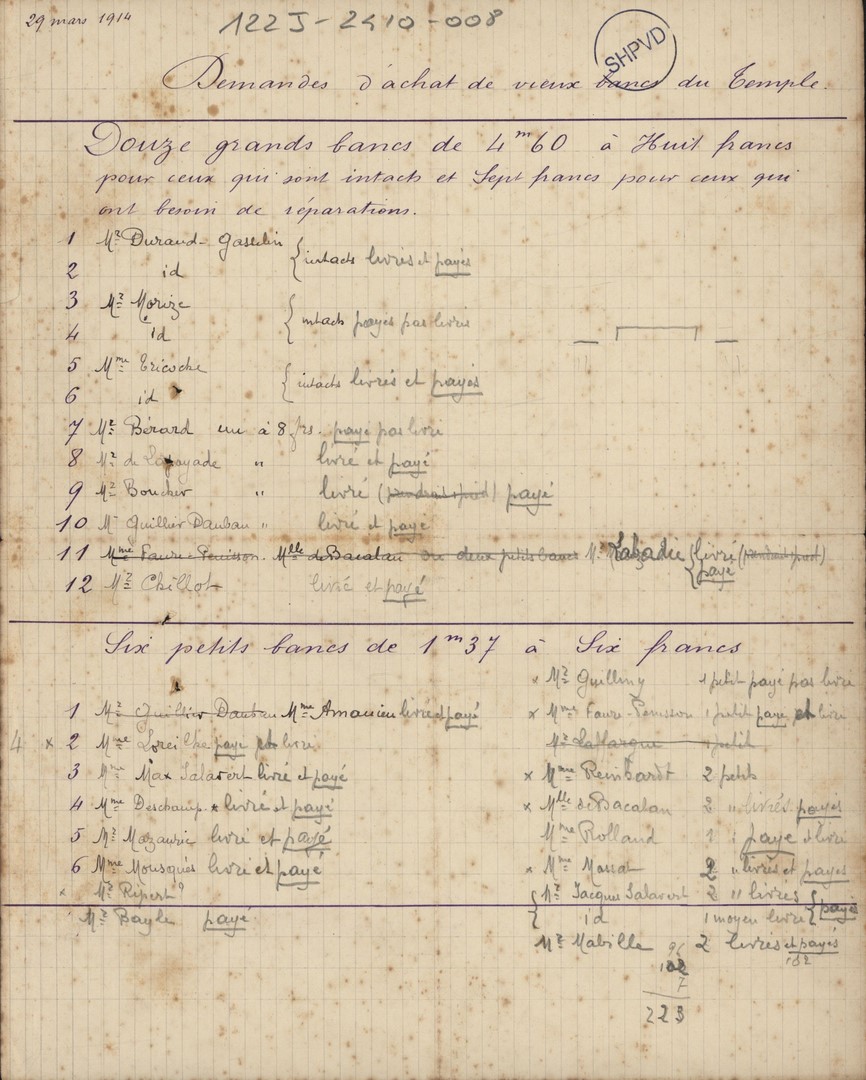 29 mars 1914
122 J - 2410 - 008
SHPVD
Demandes d'achat de vieux bancs du Temple.
Douze grands bancs de 4m60 à Huit francs
pour ceux qui sont intacts et Sept francs pour ceux qui
ont besoin de réparations.
1 Mr Durand-Gasselin
intacts livrés et payés
2 id
3 Mr Morize
intacts payés pas livrés
4 id
5 Mme Tricoche
intacts livrés et payés
6 id
7 Mr Bérard un à 8 frs. payé pas livré
8 Mr de " livré et payé
9 Mr Boucher " livré (prendrait 1 petit) payé
10 Mr Guillier Dauban " livré et payé
11 Mme Faure-Penisson. Mlle de Bacalan ou deux petits bancs Mr Labadie livré (prendrait 1 petit)
payé
12 Mr Chillot livré et payé
Six petits bancs de 1m37 à Six francs
1 Mr Guillier Dauban Mme Amanieu livré et payé
4 x 2 Mme payé et livré
3 Mme Max Salavert livré et payé
4 Mme Deschamp livré et payé
5 Mr Mazauric livré et payé
6 Mme Mousqués livré et payé
x Mr Ripert ?
Mr Bayle payé
x Mr 1 petit payé pas livré
x Mme Faure-Penisson 1 petit payé et livré
Mr Laffargue 1 petit
x Mme Reinhardt 2 petits
x Mlle de Bacalan 2 " livrés payés
Mme Rolland 1 " payé et livré
x Mme Massat 2 " livrés et payés
Mr Jacques Salavert 2 " livrés
payé
id 1 moyen livré
Mr Mabille 2 livrés et payés
96
102
132
7
223